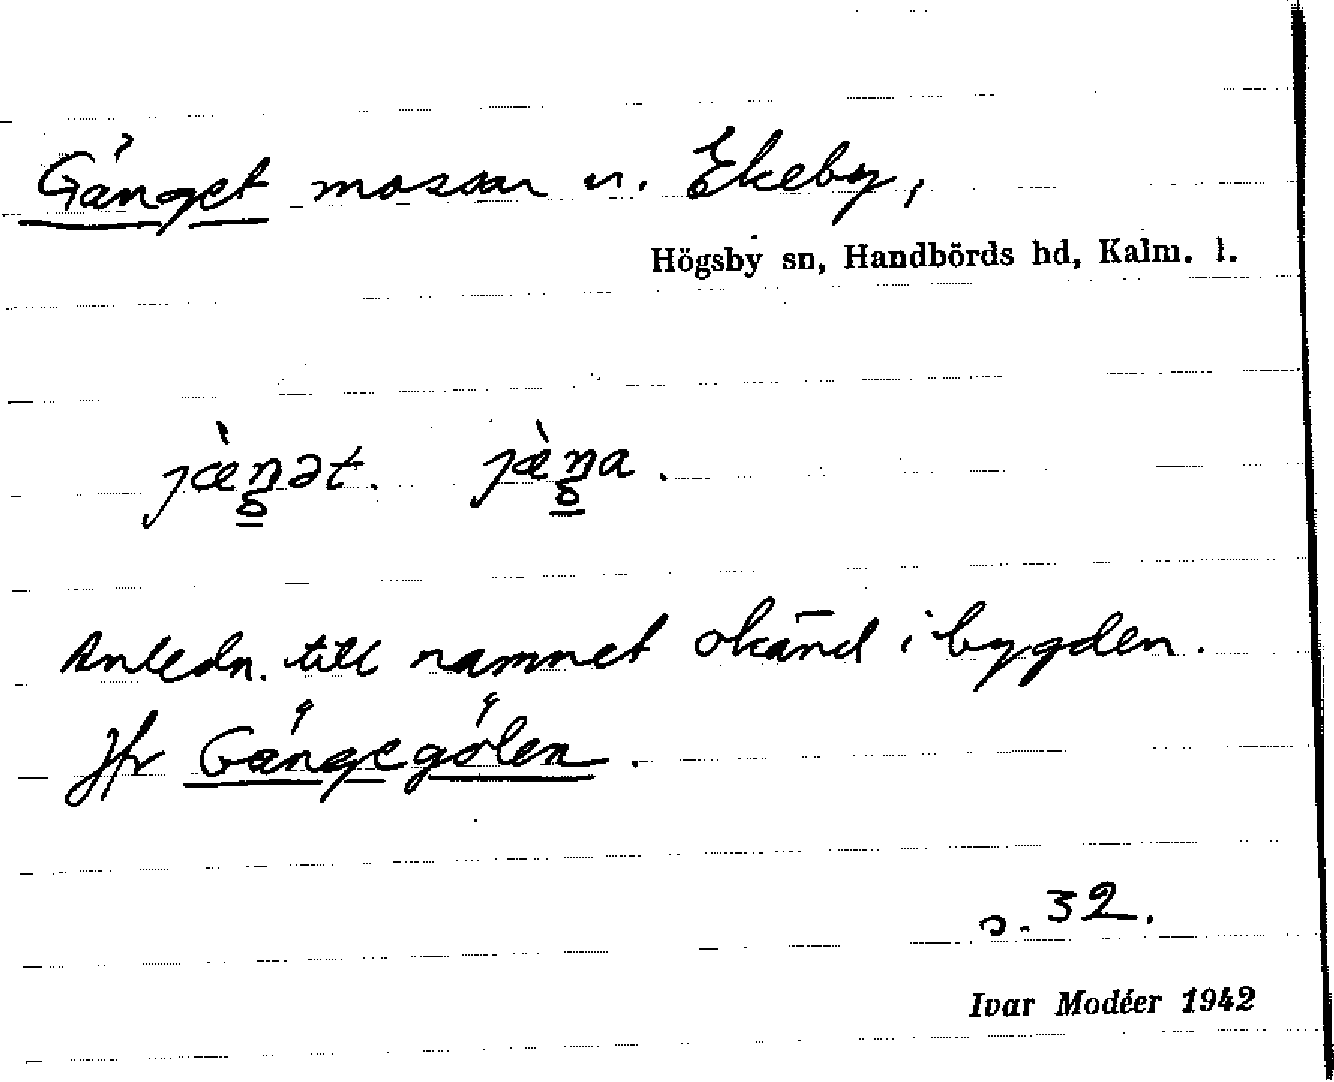 Gänget mossar n. Ekeby,
Högsby sn, Handbörds hd, Kalm. l.
jæ̀ŋət. jæ̀ŋa.
Anledn. till namnet okänd i bygden.
Jfr Gängegölen.
s. 32.
Ivar Modéer 1942